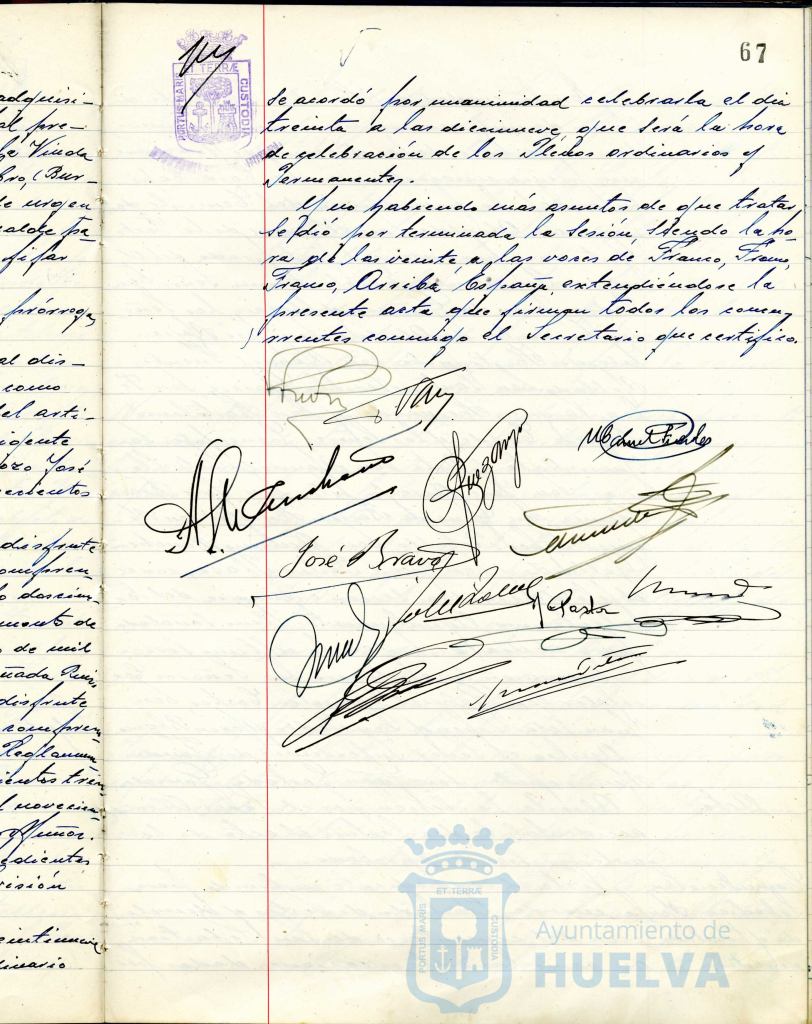 adquisi-
al pre-
Viuda
bro, (Bur-
de urgen
calde pa-
fijar
prórroga
al dis-
como
del arti-
igente
ozo José
disfrute
compren-
mento de
de mil
disfrute
compren
Reglamen
cientos trein
novecien
Muñoz.
edientes
visión
dinario
67
PORTUS MARIS
ET TERRÆ
CUSTODIA
se acordó por unanimidad celebrarla el dia
treinta a las diecinueve, que será la hora
de celebración de los Plenos ordinarios y
Permanentes.
Y no habiendo más asuntos de que tratar,
se dió por terminada la sesión, siendo la ho-
ra de las veinte, a las voces de Franco, Franco,
Franco, Arriba España, extendiéndose la
presente acta que firman todos los concu-
rrentes conmigo el Secretario que certifico.
José Bravo
Pastor
PORTUS MARIS
ET TERRÆ
CUSTODIA
Ayuntamiento de
HUELVA